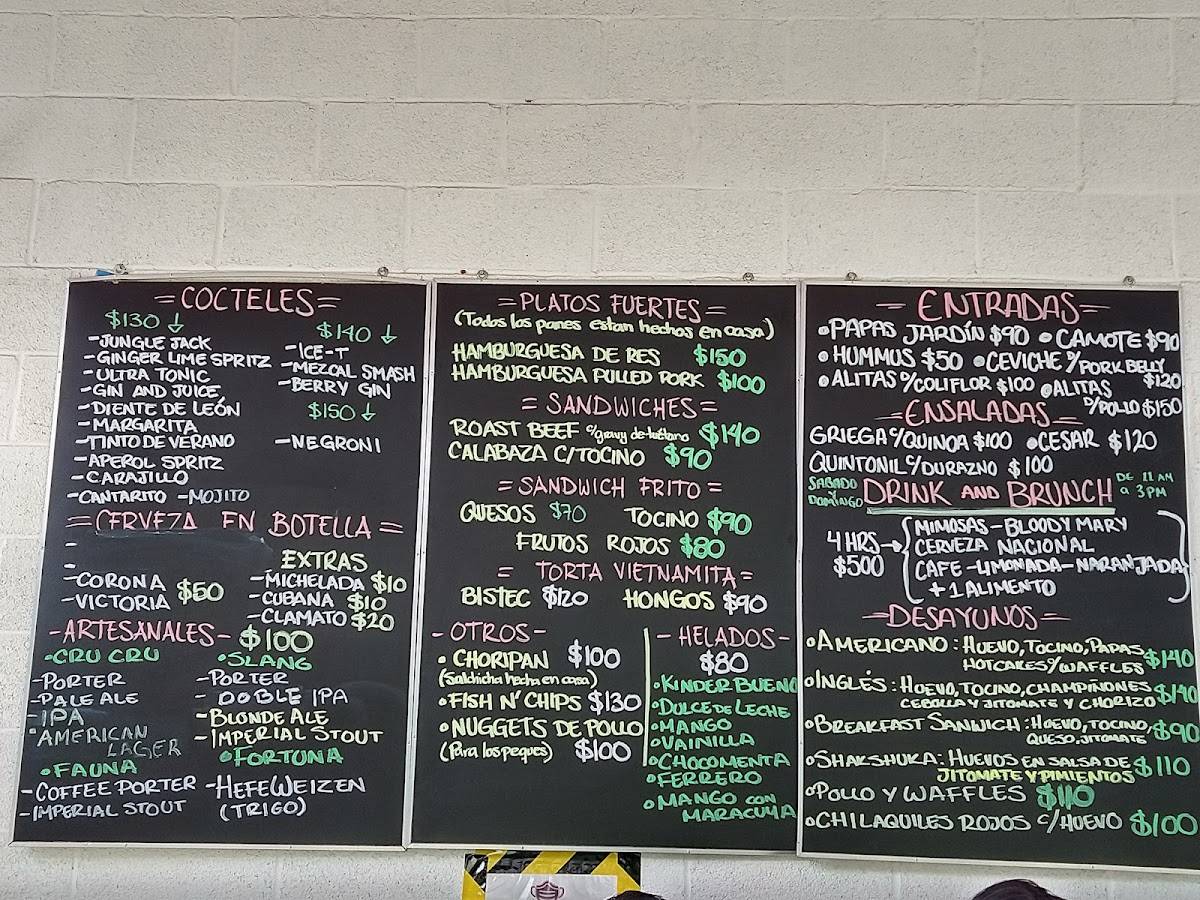 =COCTELES=
$130 ↓
-JUNGLE JACK
-GINGER LIME SPRITZ
-ULTRA TONIC
-GIN AND JUICE
-DIENTE DE LEÓN
-MARGARITA
-TINTO DE VERANO
-APEROL SPRITZ
-CARAJILLO
-CANTARITO -MOJITO
$140 ↓
-ICE-T
-MEZCAL SMASH
-BERRY GIN
$150 ↓
-NEGRONI
=CERVEZA EN BOTELLA=
-
-
-CORONA
-VICTORIA $50
EXTRAS
-MICHELADA $10
-CUBANA $10
-CLAMATO $20
-ARTESANALES- $100
•CRU CRU
-PORTER
-PALE ALE
-IPA
•AMERICAN
LAGER
•FAUNA
-COFFEE PORTER
-IMPERIAL STOUT
•SLANG
-PORTER
- DOBLE IPA
-BLONDE ALE
-IMPERIAL STOUT
•FORTUNA
-HEFEWEIZEN
(TRIGO)
=PLATOS FUERTES=
(Todos los panes estan hechos en casa)
HAMBURGUESA DE RES $150
HAMBURGUESA PULLED PORK $100
=SANDWICHES=
ROAST BEEF c/gravy de tuétano $140
CALABAZA C/TOCINO $90
=SANDWICH FRITO=
QUESOS $70 TOCINO $90
FRUTOS ROJOS $80
= TORTA VIETNAMITA=
BISTEC $120 HONGOS $90
-OTROS-
•CHORIPAN $100
(Salchicha hecha en casa)
•FISH N' CHIPS $130
•NUGGETS DE POLLO
(Para los peques) $100
-HELADOS-
$80
•KINDER BUENO
•DULCE DE LECHE
•MANGO
•VAINILLA
•CHOCOMENTA
•FERRERO
•MANGO CON
MARACUYA
=ENTRADAS=
•PAPAS JARDÍN $90 •CAMOTE $90
•HUMMUS $50 •CEVICHE c/PORK BELLY
$120
•ALITAS D/COLIFLOR $100 •ALITAS
D/POLLO $150
=ENSALADAS=
GRIEGA c/QUINOA $100 •CESAR $120
QUINTONIL c/DURAZNO $100
SABADO
Y
DOMINGO
DRINK AND BRUNCH
DE 11 AM
a 3PM
4 HRS →
$500
MIMOSAS-BLOODY MARY
CERVEZA NACIONAL
CAFE-LIMONADA-NARANJADA
+1 ALIMENTO
=DESAYUNOS=
•AMERICANO: HUEVO, TOCINO, PAPAS
HOTCAKES Y/WAFFLES $140
•INGLÉS: HUEVO, TOCINO, CHAMPIÑONES
CEBOLLA Y JITOMATE Y CHORIZO $140
•BREAKFAST SANWICH: HUEVO, TOCINO,
QUESO, JITOMATE $90
•SHAKSHUKA: HUEVOS EN SALSA DE
JITOMATE Y PIMIENTOS $110
•POLLO Y WAFFLES $110
•CHILAQUILES ROJOS C/HUEVO $100